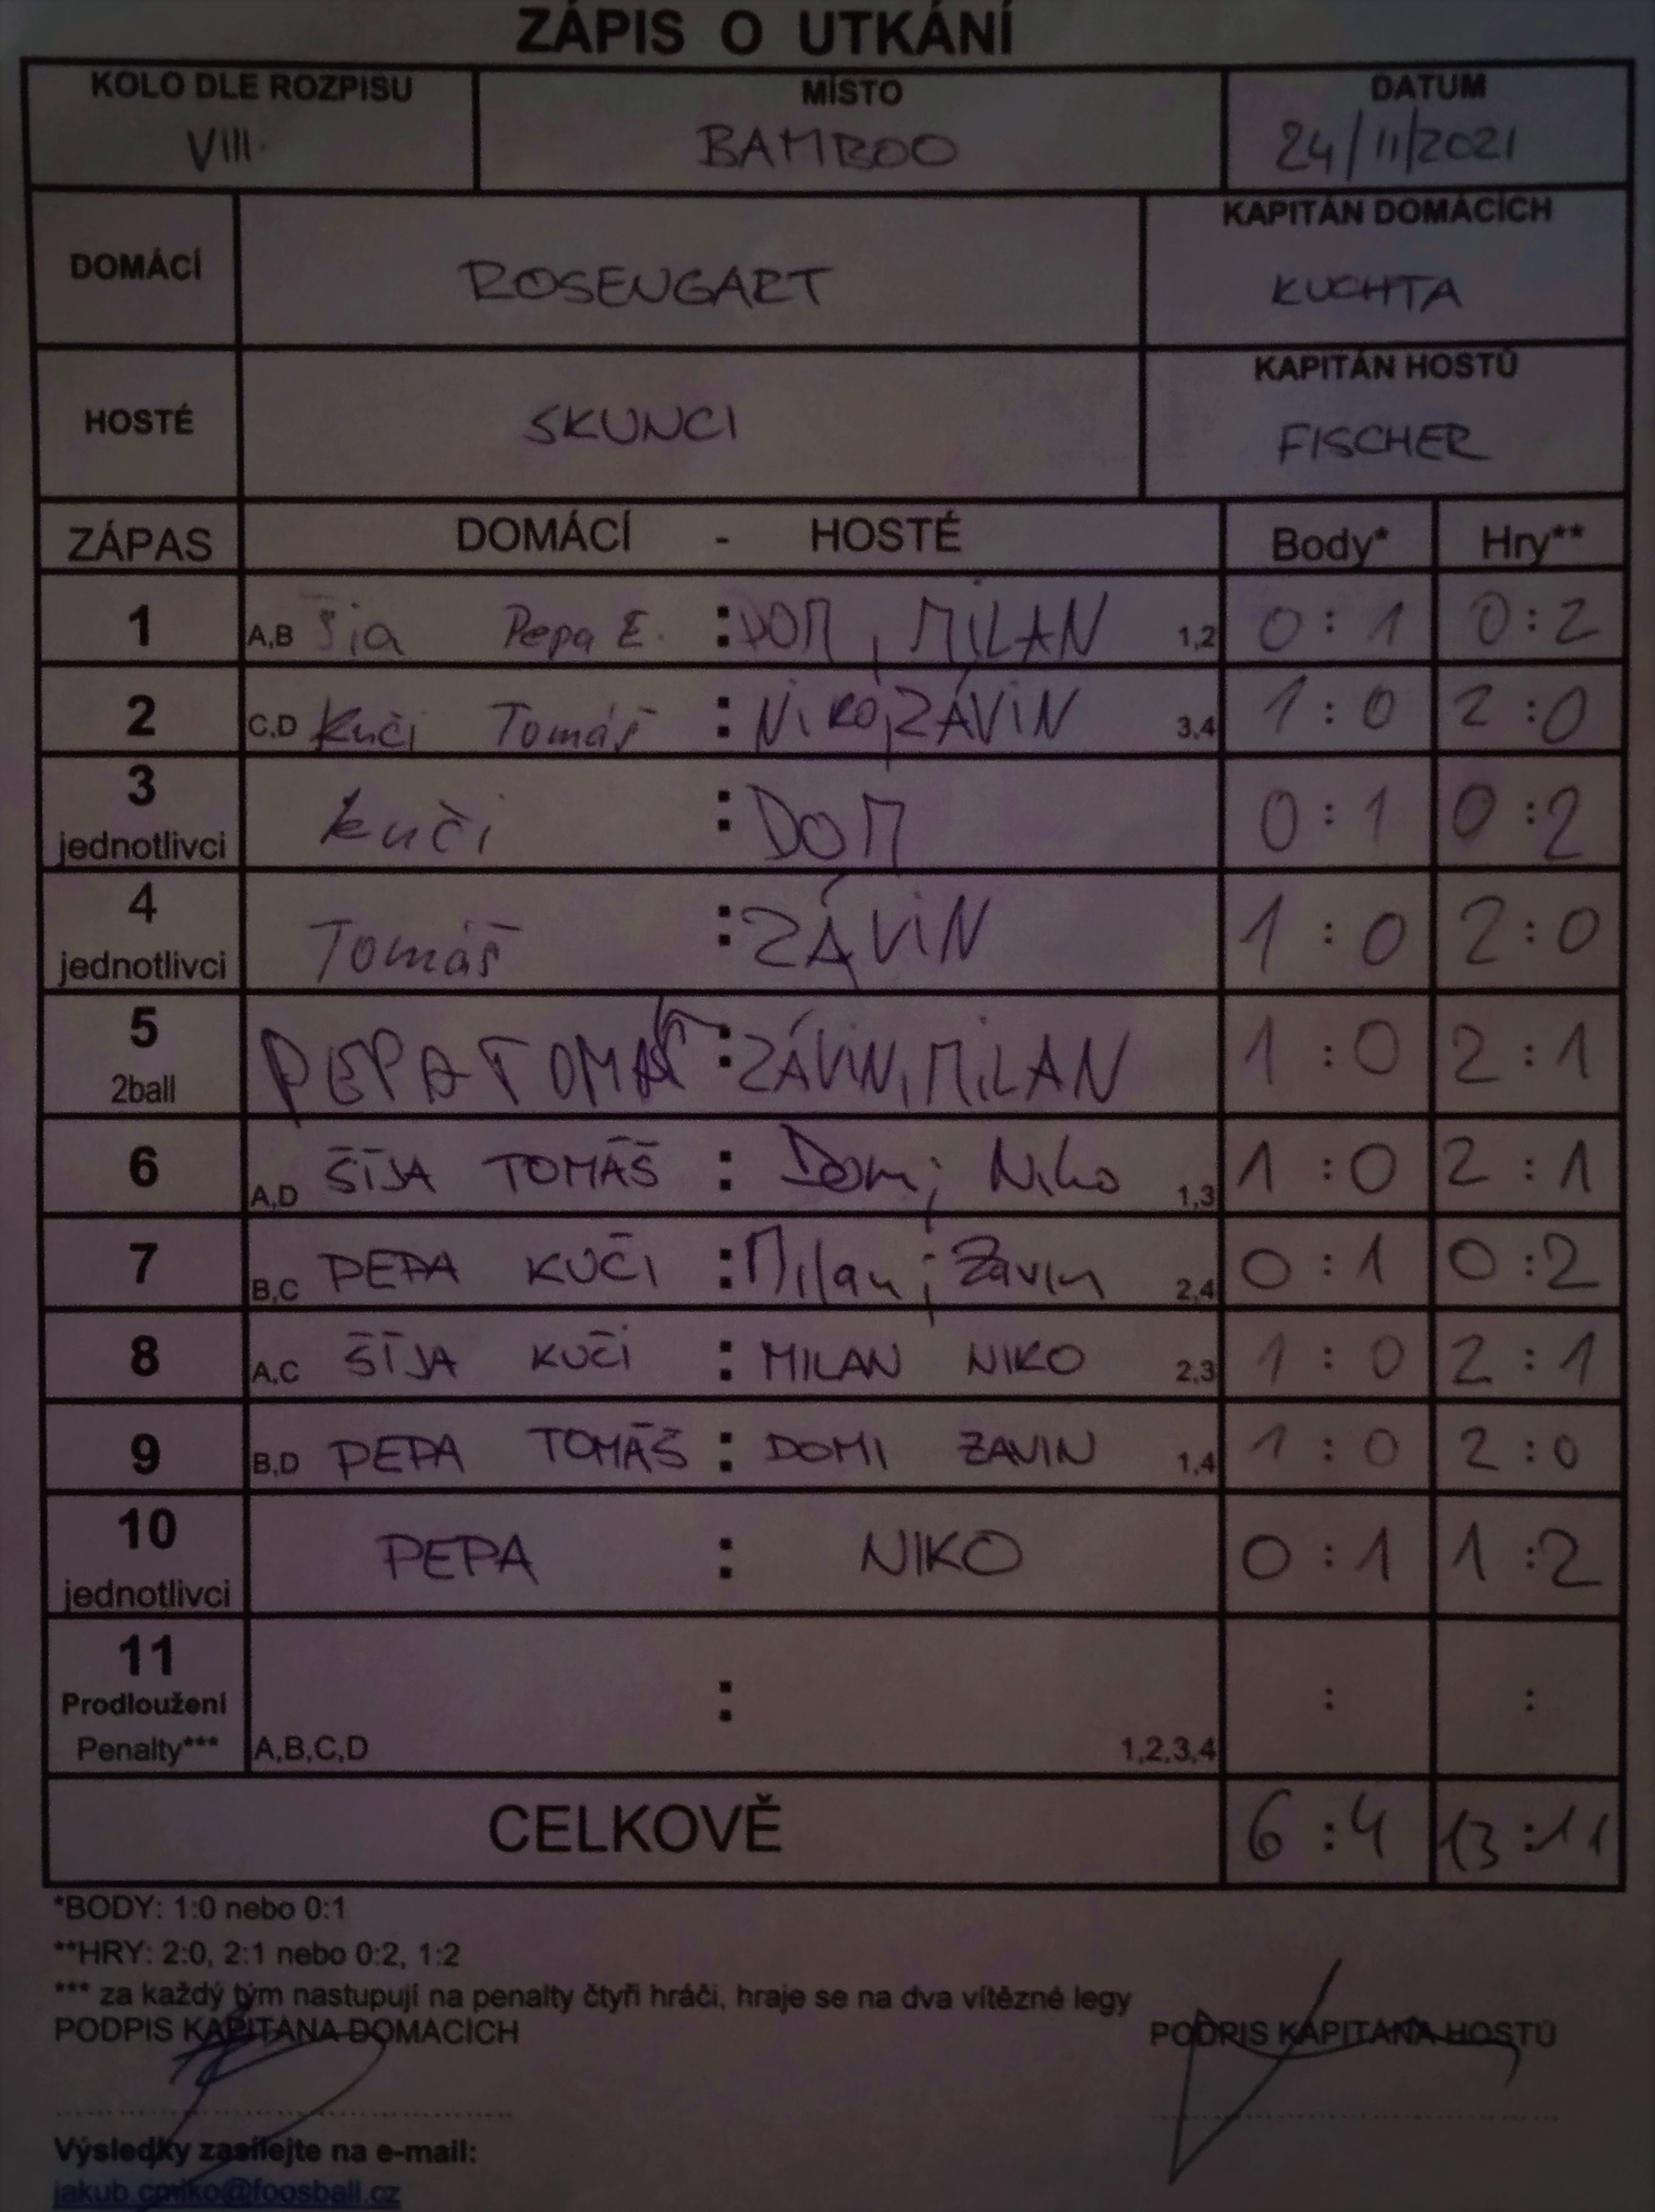 ZÁPIS O UTKÁNÍ
KOLO DLE ROZPISU MÍSTO DATUM
VIII. BAMBOO 24/11/2021
DOMÁCÍ ROSENGART KAPITÁN DOMÁCÍCH
KUCHTA
HOSTÉ SKUNCI KAPITÁN HOSTŮ
FISCHER
ZÁPAS DOMÁCÍ - HOSTÉ Body* Hry**
1 A,B Šia Pepa E. : DOM, MiLAN 1,2 0:1 0:2
2 C,D Kuči Tomáš : NiKO, ZÁViN 3,4 1:0 2:0
3 jednotlivci Kuči : DOM 0:1 0:2
4 jednotlivci Tomáš : ZÁViN 1:0 2:0
5 2ball PEPA TOMÁŠ : ZÁViN, MiLAN 1:0 2:1
6 A,D ŠÍJA TOMÁŠ : Dom; Niko 1,3 1:0 2:1
7 B,C PEPA KUČI : Milan; Závin 2,4 0:1 0:2
8 A,C ŠÍJA KUČI : MILAN NIKO 2,3 1:0 2:1
9 B,D PEPA TOMÁŠ : DOMI ZAVIN 1,4 1:0 2:0
10 jednotlivci PEPA : NIKO 0:1 1:2
11 : : :
Prodloužení
Penalty*** A,B,C,D 1,2,3,4
CELKOVĚ 6:4 13:11
*BODY: 1:0 nebo 0:1
**HRY: 2:0, 2:1 nebo 0:2, 1:2
*** za každý tým nastupují na penalty čtyři hráči, hraje se na dva vítězné legy
PODPIS KAPITÁNA DOMÁCÍCH PODPIS KAPITÁNA HOSTŮ
Výsledky zasílejte na e-mail: